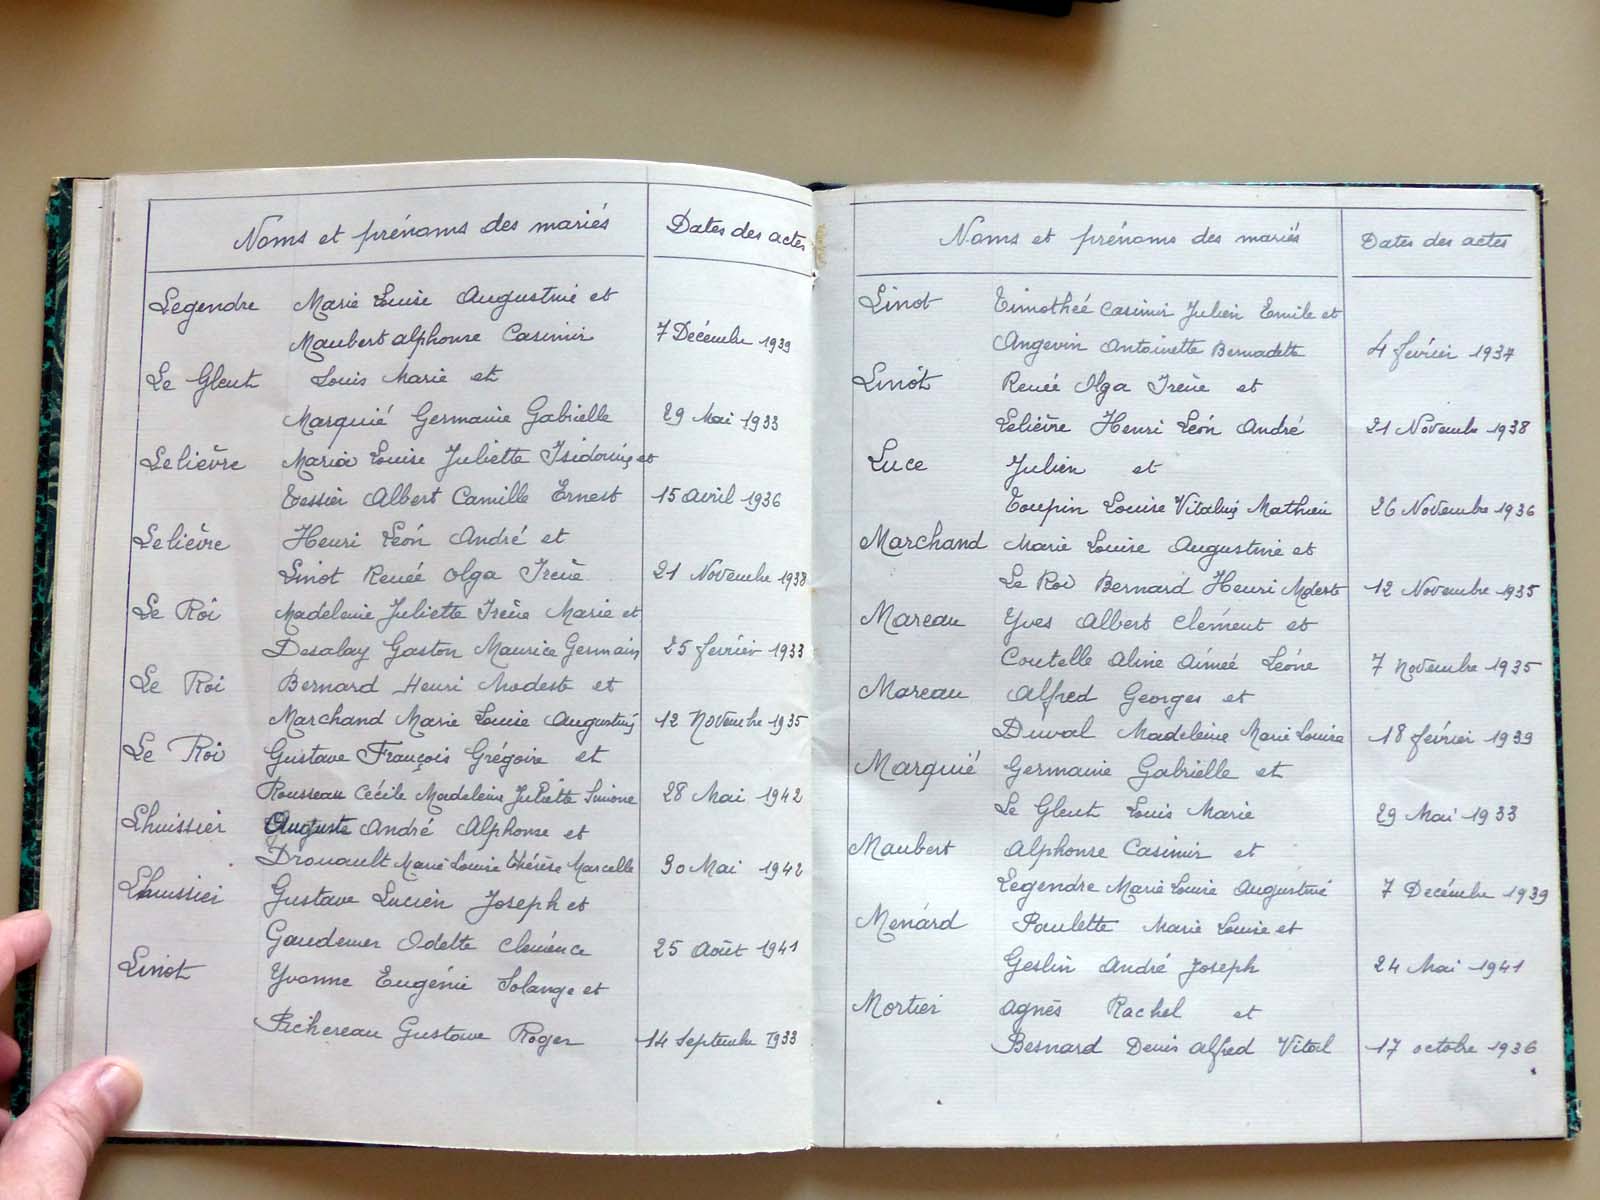 Noms et prénoms des mariés Dates des actes
Legendre Marie Louise Augustine et
Maubert Alphonse Casimir 7 Décembre 1939
Le Gleut Louis Marie et
Marquié Germaine Gabrielle 29 Mai 1933
Lelièvre Maria Louise Juliette Isidorine et
Tessier Albert Camille Ernest 15 avril 1936
Lelièvre Henri Léon André et
Linot Renée Olga Irène 21 Novembre 1938
Le Roi Madeleine Juliette Irène Marie et
Desalay Gaston Maurice Germain 25 février 1933
Le Roi Bernard Henri Modest et
Marchand Marie Louise Augustine 12 Novembre 1935
Le Roi Gustave François Grégoire et
Rousseau Cécile Madeleine Juliette Simone 28 Mai 1942
Lhuissier Auguste André Alphonse et
Drouault Marie Louise Thérèse Marcelle 30 Mai 1942
Lhuissier Gustave Lucien Joseph et
Gaudemer Odette Clémence 25 Août 1941
Linot Yvonne Eugénie Solange et
Pichereau Gustave Roger 14 Septembre 1933
Noms et prénoms des mariés Dates des actes
Linot Timothée Casimir Julien Emile et
Angevin Antoinette Bernadette 4 février 1937
Linot Renée Olga Irène et
Lelièvre Henri Léon André 21 Novembre 1938
Luce Julien et
Toupin Louise Vitaline Mathieu 26 Novembre 1936
Marchand Marie Louise Augustine et
Le Roi Bernard Henri Modest 12 Novembre 1935
Mareau Yves Albert Clément et
Coutelle Aline Aimée Léone 7 Novembre 1935
Mareau Alfred Georges et
Duval Madeleine Marie Louise 18 février 1939
Marquié Germaine Gabrielle et
Le Gleut Louis Marie 29 Mai 1933
Maubert Alphonse Casimir et
Legendre Marie Louise Augustine 7 Décembre 1939
Menárd Paulette Marie Louise et
Geslin André Joseph 24 Mai 1941
Mortier Agnès Rachel et
Besnard Denis Alfred Vital 17 octobre 1936